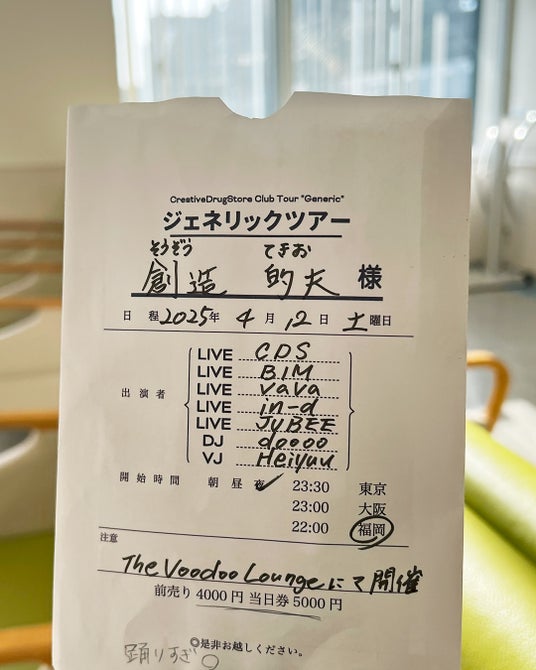 CreativeDrugStore Club Tour "Generic"
ジェネリックツアー
そうぞう てきお
創造 的夫 様
日程 2025年 4月 12日 土曜日
出演者
LIVE CDS
LIVE BIM
LIVE VaVa
LIVE in-d
LIVE JUBEE
DJ doooo
VJ Heiyuu
開始時間 朝 昼 夜 23:30 東京
23:00 大阪
22:00 福岡
注意
The Voodoo Loungeにて開催
前売り 4000円 当日券 5000円
◎是非お越しください。
踊りすぎ